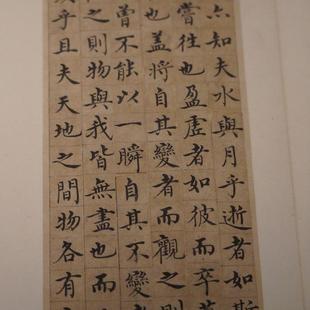 亦知夫水與月乎逝者如斯
嘗往也盈虛者如彼而卒莫
也蓋將自其變者而觀之則
曾不能以一瞬自其不變者
之則物與我皆無盡也而
乎且夫天地之間物各有